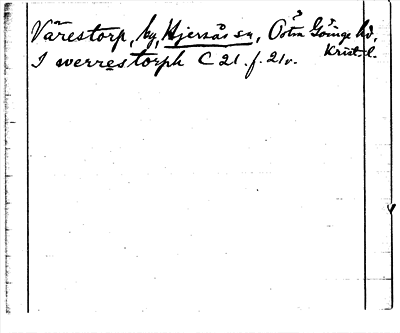 Värestorp, by, Hjersås sn, Östra Göinge hd,
Krist. l.
I werrestorph C 21. f. 21v.